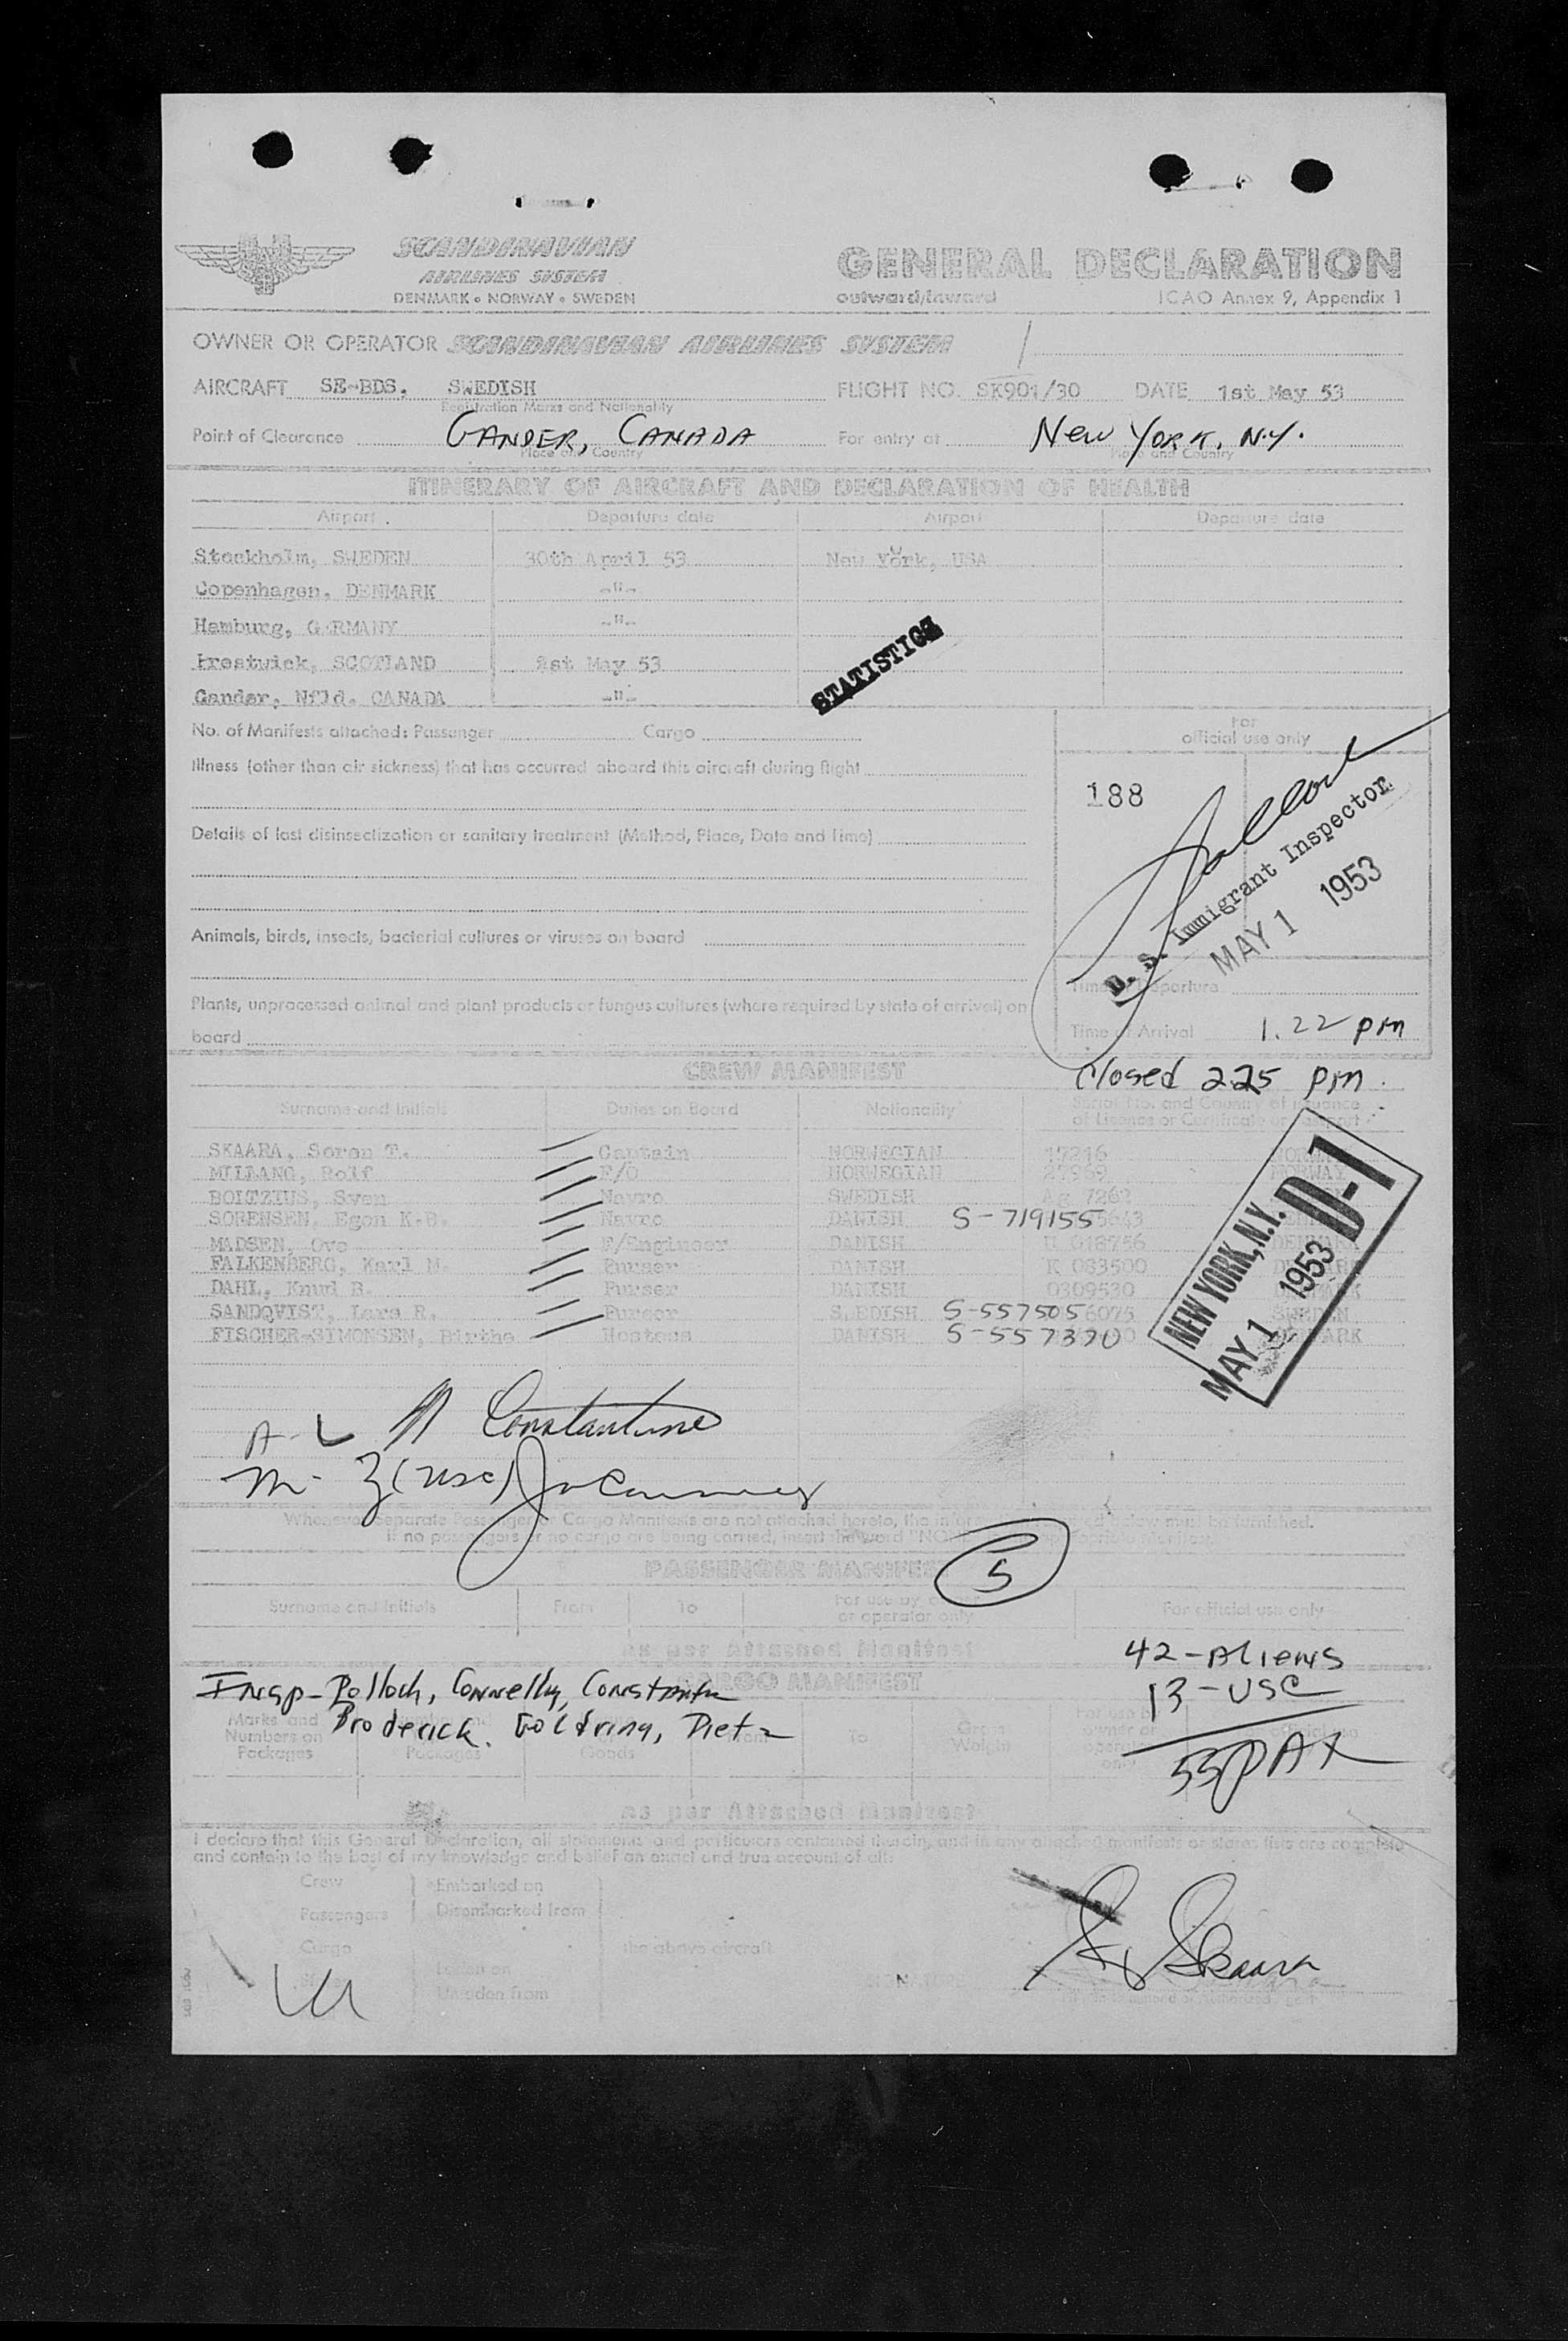 SCANDINAVIAN
AIRLINES SYSTEM
DENMARK • NORWAY • SWEDEN
GENERAL DECLARATION
outward/inward
ICAO Annex 9, Appendix 1
OWNER OR OPERATOR SCANDINAVIAN AIRLINES SYSTEM
AIRCRAFT SE-BDS, SWEDISH FLIGHT NO. SK901/30 DATE 1st May 53
Registration Marks and Nationality
Point of Clearance GANDER, CANADA For entry at New YORK, N.Y.
Place and Country Place and Country
ITINERARY OF AIRCRAFT AND DECLARATION OF HEALTH
Airport Departure date Airport Departure date
Stockholm, SWEDEN 30th April 53 New York, USA
Copenhagen, DENMARK -"-
Hamburg, GERMANY -"-
Prestwick, SCOTLAND 1st May 53
Gander, Nfld. CANADA -"-
STATISTICS
No. of Manifests attached: Passenger Cargo
For
official use only
Illness (other than air sickness) that has occurred aboard this aircraft during flight
188
Details of last disinsectization or sanitary treatment (Method, Place, Date and Time)
U. S. Immigrant Inspector
MAY 1 1953
Animals, birds, insects, bacterial cultures or viruses on board
Time of Departure
Plants, unprocessed animal and plant products or fungus cultures (where required by state of arrival) on
board
Time of Arrival 1.22 pm
Closed 225 pm.
CREW MANIFEST
Surname and Initials Duties on Board Nationality Serial No. and Country of issuance
of Licence or Certificate or Passport
SKAARA, Soren T. Captain NORWEGIAN 17216 NORWAY
MILLANG, Rolf F/O NORWEGIAN 27969 NORWAY
BOLTZIUS, Sven Navro SWEDISH Ag 7262
SORENSEN, Egon K.B. Navro DANISH S-719155
MADSEN, Ove F/Engineer DANISH U 018756 DENMARK
FALKENBERG, Karl M. Purser DANISH K 083500 DENMARK
DAHL, Knud B. Purser DANISH 0309530 DENMARK
SANDQVIST, Lars R. Purser SWEDISH S-557505 SWEDEN
FISCHER-SIMONSEN, Birthe Hostess DANISH S-557370 DENMARK
NEW YORK, N.Y. D-1
MAY 1 1953
A-L Constantine
M- 3 (USC)
Whenever separate Passenger or Cargo Manifests are not attached hereto, the must be furnished.
If no passengers or no cargo are being carried, insert the word
5
PASSENGER MANIFEST
Surname and Initials From To For use by
or operator only For official use only
as per Attached Manifest
42-Aliens
13-USC
55 PAX
CARGO MANIFEST
Insp-Polloch, Connelly, Constantin
Broderick. Goldring, Dietz
Marks and
Numbers on
Packages Packages Goods From To Gross
Weight
as per Attached Manifest
I declare that this General Declaration, all statements and particulars contained therein, and in any attached manifests or stores lists are complete
and contain to the best of my knowledge and belief an exact and true account of all:
Crew Embarked on
Passengers Disembarked from
Cargo the above aircraft
Laden on
Unladen from
Skaara